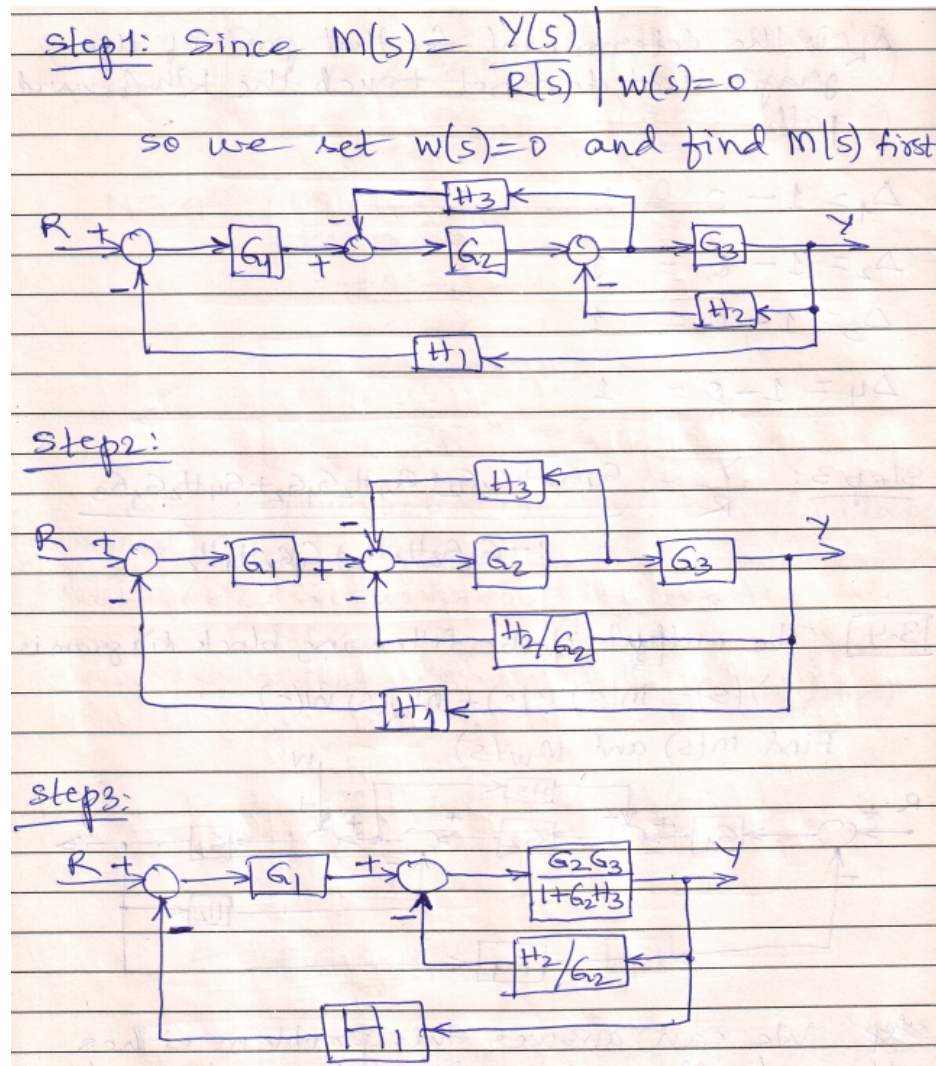 Step1: Since M(s) = Y(s)/R(s) | W(s)=0
so we set W(s)=0 and find M(s) first
H3
R + G1 + - G2 - G3 Y
- H2
H1
Step2:
H3
R + G1 + - G2 G3 Y
- - H2/G2
H1
Step3:
R + G1 + G2G3/1+G2H3 Y
- - H2/G2
H1